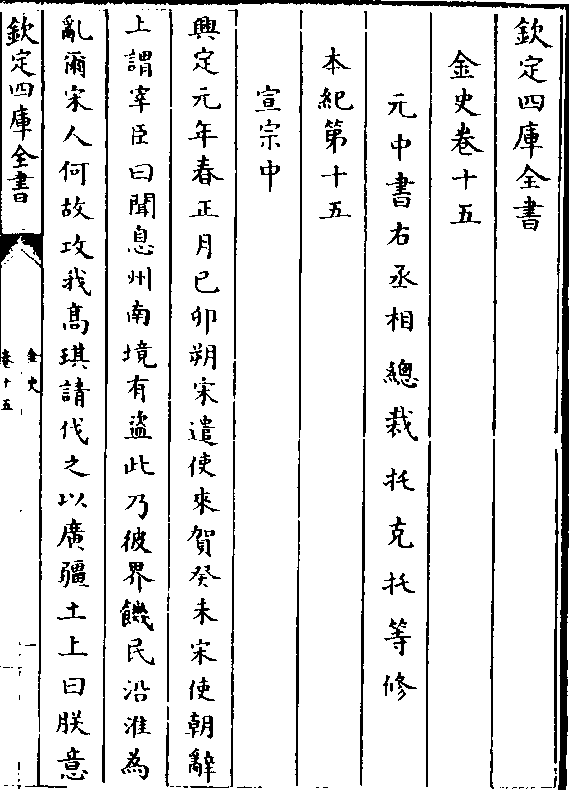 欽定四庫全書
金史卷十五
元中書右丞相總裁托克托等修
本紀第十五
宣宗中
興定元年春正月己卯朔宋遣使來賀癸未宋使朝辭
上謂宰臣曰聞息州南境有盜此乃彼界饑民沿淮為
亂爾宋人何故攻我髙琪請伐之以廣疆土上曰朕意
欽定四庫全書
金史
卷十五
一